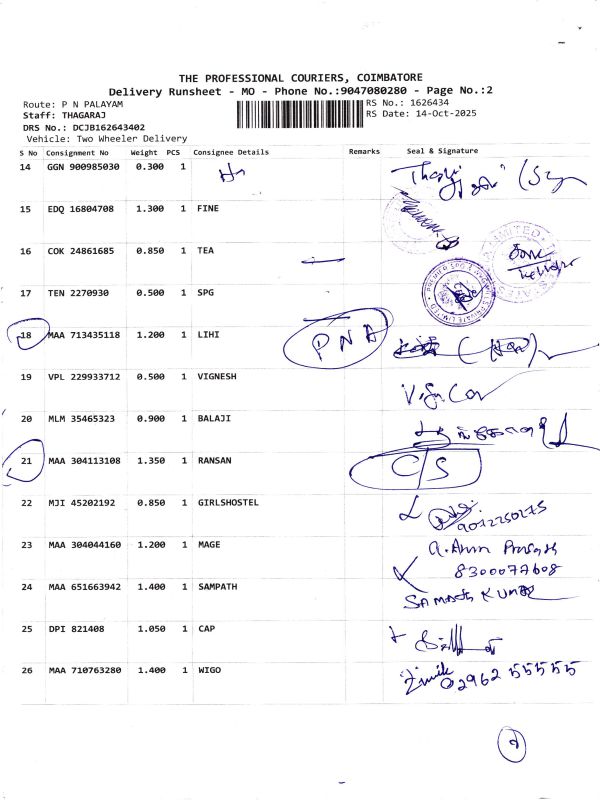 THE PROFESSIONAL COURIERS, COIMBATORE
Delivery Runsheet - MO - Phone No.:9047080280 - Page No.:2
Route: P N PALAYAM
RS No.: 1626434
Staff: THAGARAJ
RS Date: 14-Oct-2025
DRS No.: DCJB162643402
Vehicle: Two Wheeler Delivery
S No Consignment No Weight PCS Consignee Details Remarks Seal & Signature
14 GGN 900985030 0.300 1
15 EDQ 16804708 1.300 1 FINE
16 COK 24861685 0.850 1 TEA
17 TEN 2270930 0.500 1 SPG
18 MAA 713435118 1.200 1 LIHI PNA
19 VPL 229933712 0.500 1 VIGNESH
20 MLM 35465323 0.900 1 BALAJI
21 MAA 304113108 1.350 1 RANSAN C/S
22 MJI 45202192 0.850 1 GIRLSHOSTEL
23 MAA 304044160 1.200 1 MAGE
8300077608
24 MAA 651663942 1.400 1 SAMPATH
25 DPI 821408 1.050 1 CAP
26 MAA 710763280 1.400 1 WIGO